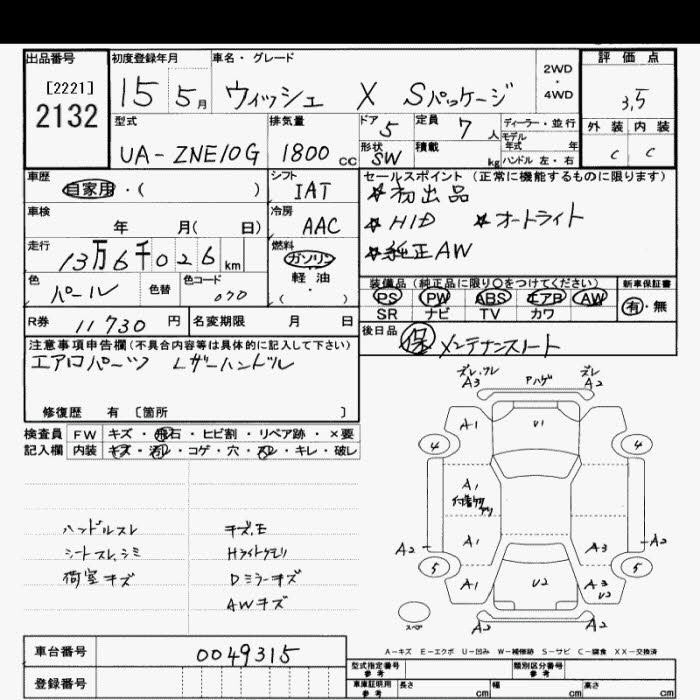 出品番号
[2221]
2132
初度登録年月
15 5月
車名・グレード
ウィッシュ X Sパッケージ
2WD
・
4WD
評価点
3.5
外装 内装
C C
型式
UA-ZNE10G
排気量
1800cc
ドア 5
形状 SW
定員 7人
積載 kg
ディーラー・並行
モデル年式 年
ハンドル 左・右
車歴
自家用・( )
シフト
IAT
セールスポイント(正常に機能するものに限ります)
☆初出品
☆HID ☆オートライト
☆純正AW
車検
年 月( 日)
冷房
AAC
走行
13万6千026km
燃料
ガソリン
軽油
( )
色
パール
色替
色コード
070
装備品(純正品に限り○をつけてください)
PS PW ABS エアB AW
SR ナビ TV カワ
新車保証書
有・無
R券 11730円
名変期限 月 日
後日品
保 メンテナンスノート
注意事項申告欄(不具合内容等は具体的に記入して下さい)
エアロパーツ レザーハンドル
修復歴 有 〔箇所 〕
検査員 FW キズ・飛石・ヒビ割・リペア跡・×要
記入欄 内装 キズ・汚レ・コゲ・穴・スレ・キレ・破レ
ハンドルスレ
シートスレ,シミ
荷室キズ
キズ,E
Hライトクモリ
Dミラーキズ
AWキズ
ズレ,ワレ
A3
Aハゲ
ズレ
A2
A1
U1
4
4
A1
A2
A1
A3
A2
5
5
A1
U2
A3
U2
スペア
A2
A2
A-キズ E-エクボ U-凹み W-補修跡 S-サビ C-腐食 XX-交換済
車台番号 0049315
登録番号
型式指定番号
参考
類別区分番号
参考
車庫証明用
参考
長さ cm
幅 cm
高さ cm